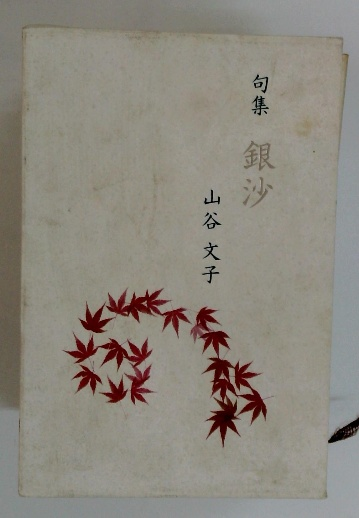 句集
銀沙
山谷 文子